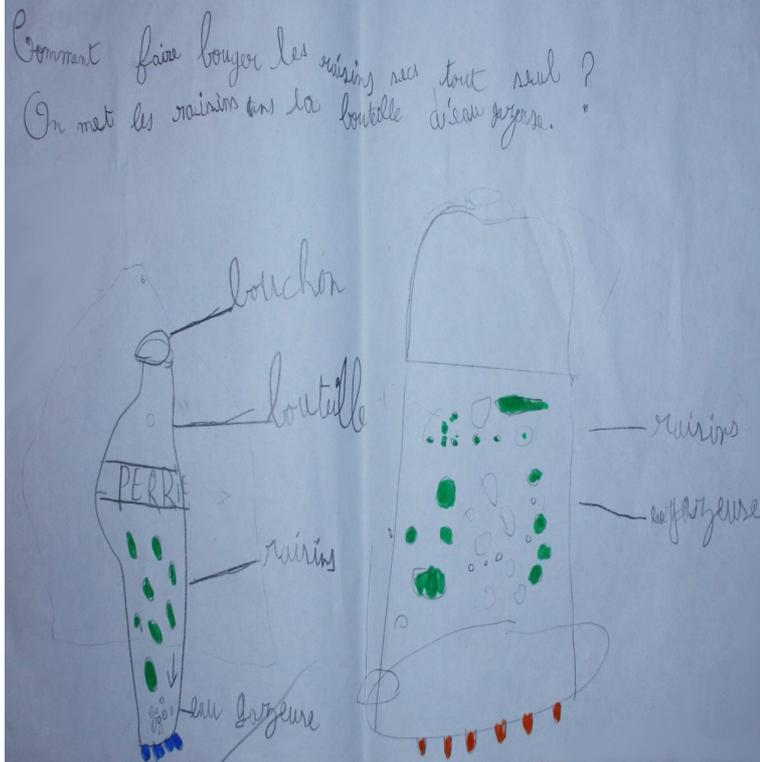 Comment faire bouger les raisins secs tout seul ?
On met les raisins dans la bouteille d'eau gazeuse.
bouchon
bouteille
PERRIE
raisins
eau gazeuse
raisins
eau gazeuse